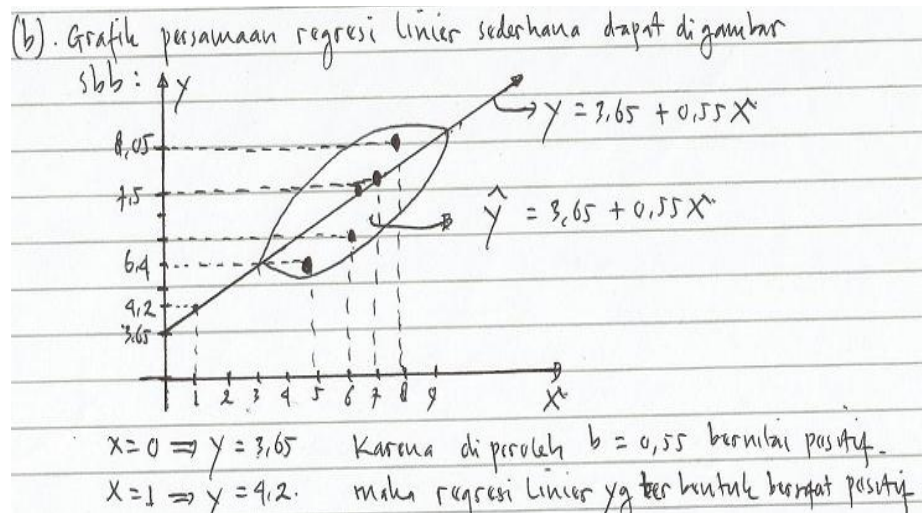 (b). Grafik persamaan regresi linier sederhana dapat digambar
sbb:
Y
Y = 3,65 + 0,55X
8,05
7,5
Ŷ = 3,65 + 0,55X
6,4
4,2
3,65
1 2 3 4 5 6 7 8 9
X
X=0 ⇒ Y = 3,65 Karena diperoleh b = 0,55 bernilai positif.
X=1 ⇒ Y = 4,2. maka regresi linier yg terbentuk bersifat positif